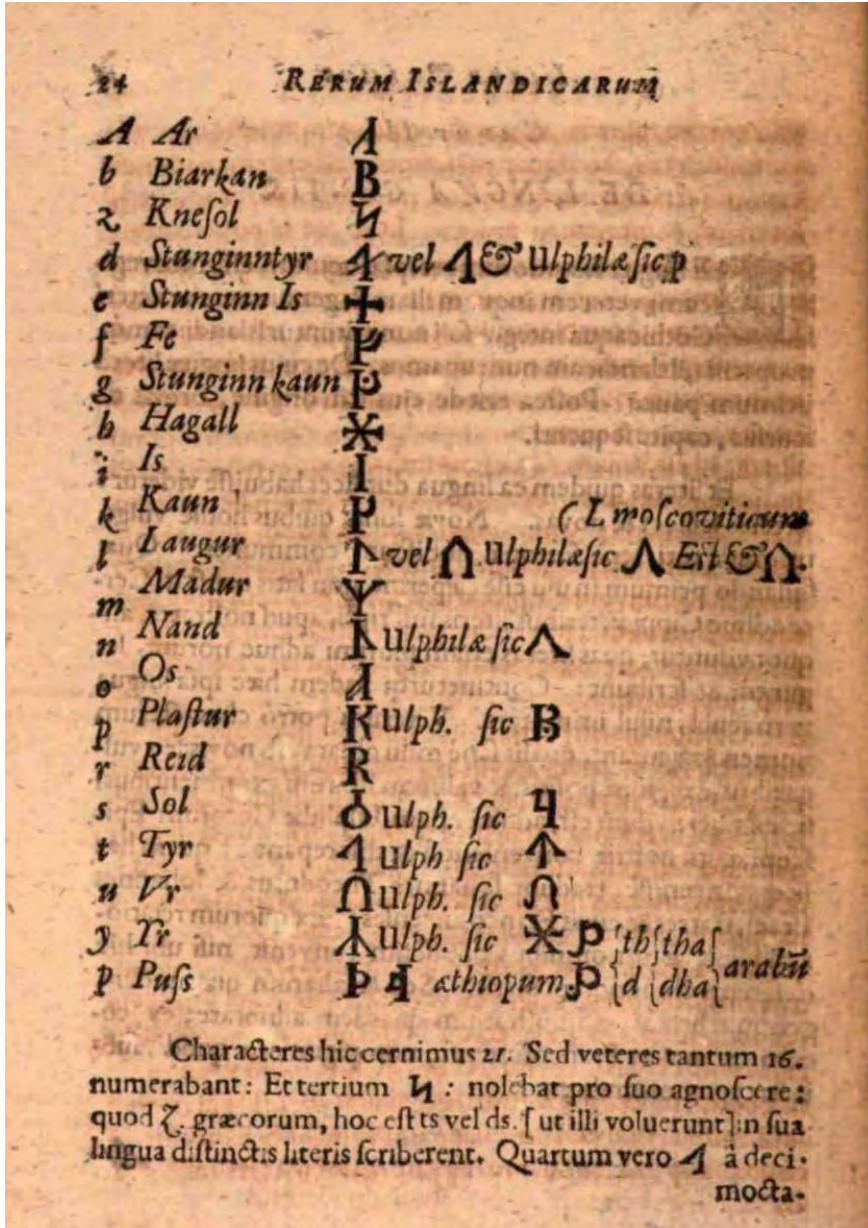 24 RERUM ISLANDICARUM
A Ar ᛅ
b Biarkan ᛒ
z Kneſol ᛋ
d Stunginntyr vel ᛐ & Ulphilæ ſic p
e Stunginn Is ᛭
f Fe ᚠ
g Stunginn kaun ᚵ
h Hagall ᚼ
i Is ᛁ
k Kaun ᚴ (L moſcoviticum
l Laugur ᛚ vel ᑎ Ulphilæ ſic Λ Eſt & ᑎ.
m Madur ᛘ
n Nand Ulphilæ ſic Λ
o Os
p Plaſtur K Ulph. ſic B
r Reid R
s Sol Ulph. ſic Ч
t Tyr ᛐ Ulph ſic ᛏ
u Vr ᑎ Ulph. ſic ᑎ
y Yr ᛣ Ulph. ſic ᚼ {th {tha {
p Puſs Þ æthiopum {d {dha } arabū
Characteres hic cernimus 21. Sed veteres tantum 16.
numerabant: Et tertium Ч : nolebat pro ſuo agnoſcere:
quod ζ. græcorum, hoc eſt ts vel ds. [ut illi voluerunt] in ſua
lingua diſtinctis literis ſcriberent. Quartum vero ᛐ à deci-
mocta-